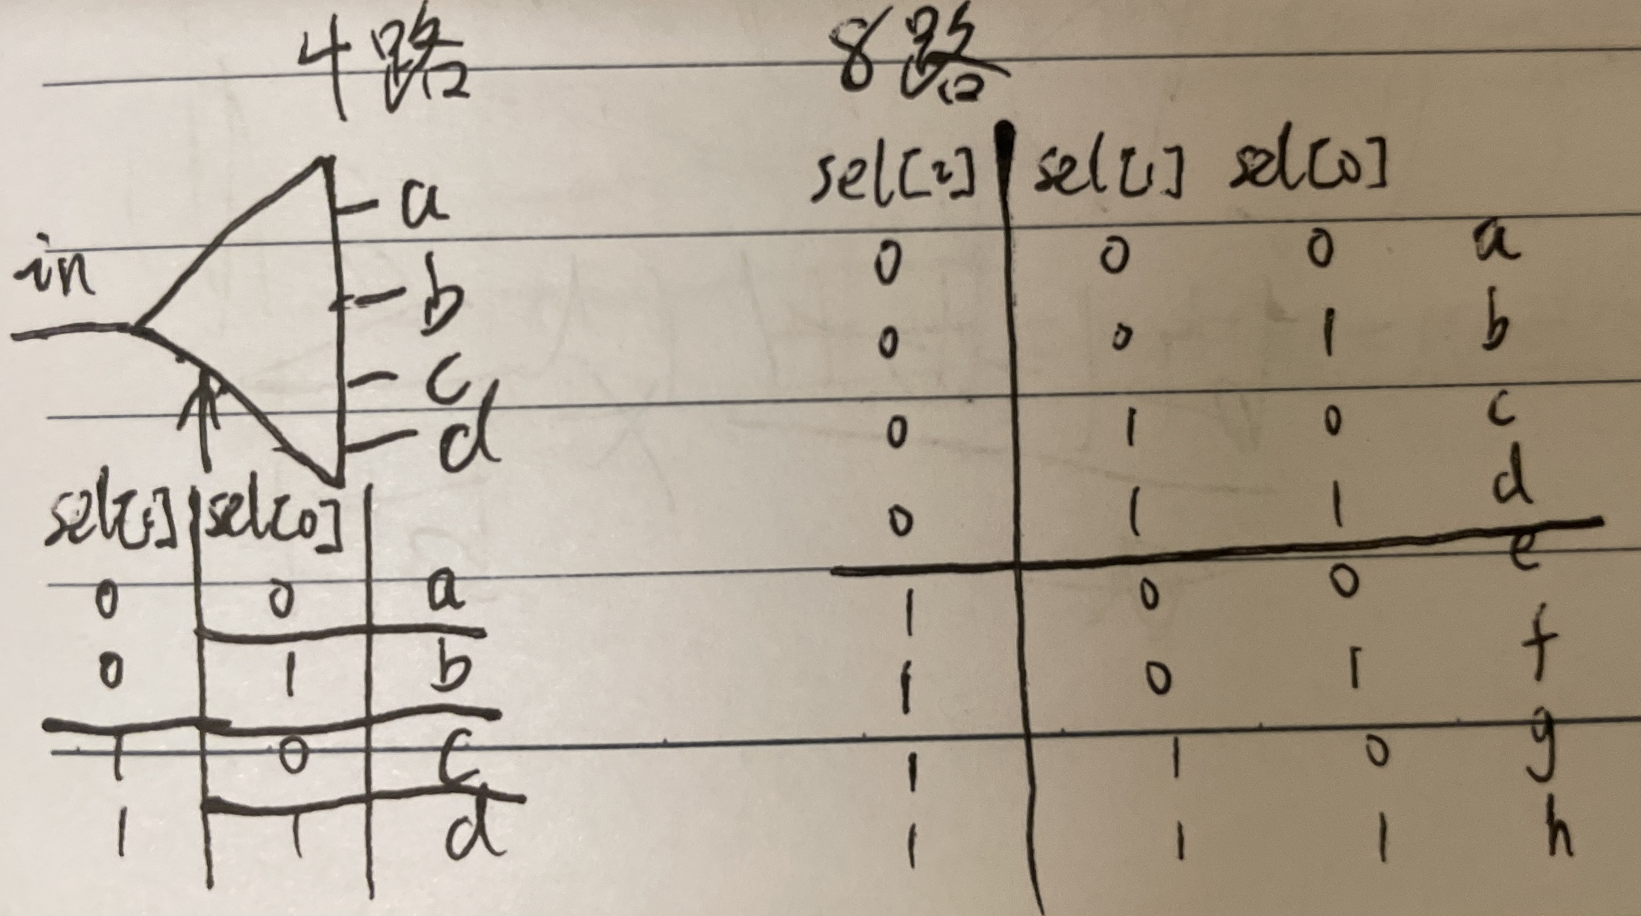 4路
in
a
b
c
d
sel[1] sel[0]
0 0 a
0 1 b
1 0 c
1 1 d
8路
sel[2] sel[1] sel[0]
0 0 0 a
0 0 1 b
0 1 0 c
0 1 1 d
1 0 0 e
1 0 1 f
1 1 0 g
1 1 1 h